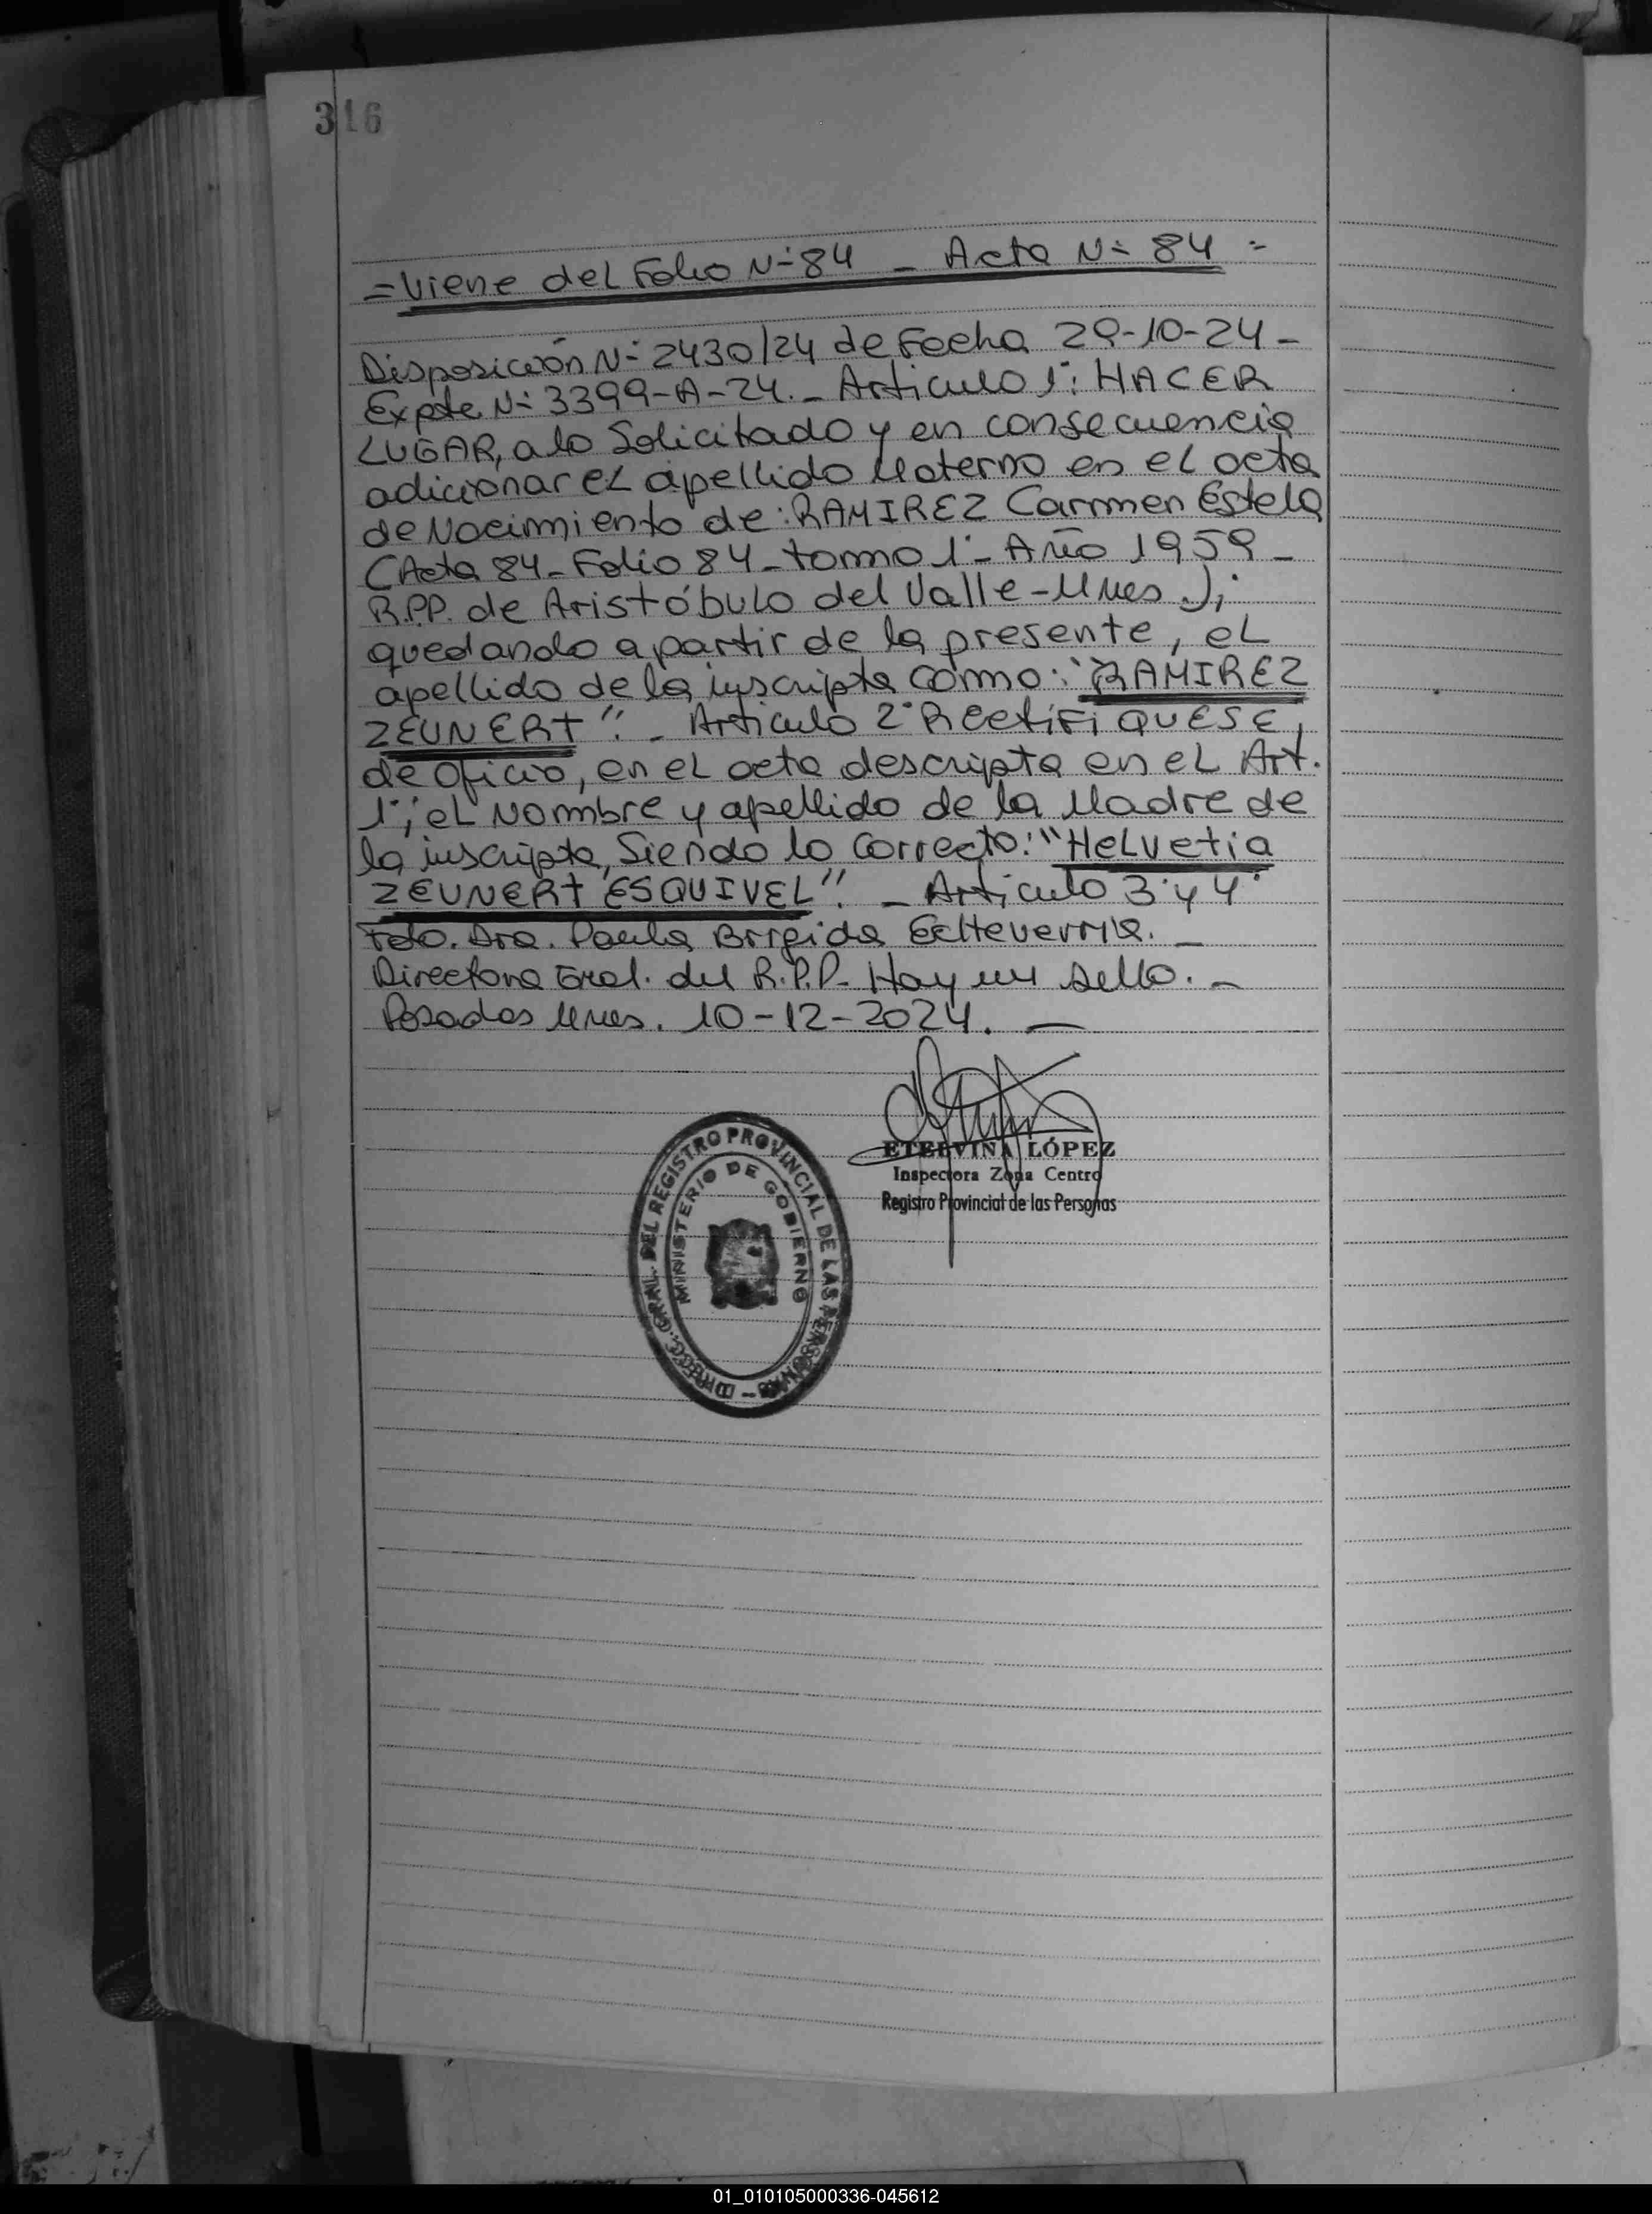 316
=Viene del Folio Nº 84 - Acta Nº 84 =
Disposición Nº 2430/24 de Fecha 29-10-24-
Expte Nº 3399-A-24.- Articulo 1º: HACER
LUGAR, a lo Solicitado y en consecuencia
adicionar el apellido Materno en el acta
de Nacimiento de: RAMIREZ Carmen Estela
(Acta 84- Folio 84- tomo 1º- Año 1959 -
R.P.P. de Aristóbulo del Valle-Mnes.);
quedando a partir de la presente, el
apellido de la inscripta como: "RAMIREZ
ZEUNERT".- Articulo 2º RectiFiQUESE,
de oficio, en el acta descripta en el Art.
1º; el Nombre y apellido de la Madre de
la inscripta, Siendo lo Correcto: "Helvetia
ZEUNERT ESQUIVEL". - Articulo 3º y 4º
Fdo. Dra. Paula Brigida Echeverria. -
Directora Gral. del R.P.P. Hay un sello. -
Posadas Mnes. 10-12-2024. -
ETELVINA LÓPEZ
Inspectora Zona Centro
Registro Provincial de las Personas
DIRECC. GRAL. DEL REGISTRO PROVINCIAL DE LAS PERSONAS -
MINISTERIO DE GOBIERNO
01_010105000336-045612